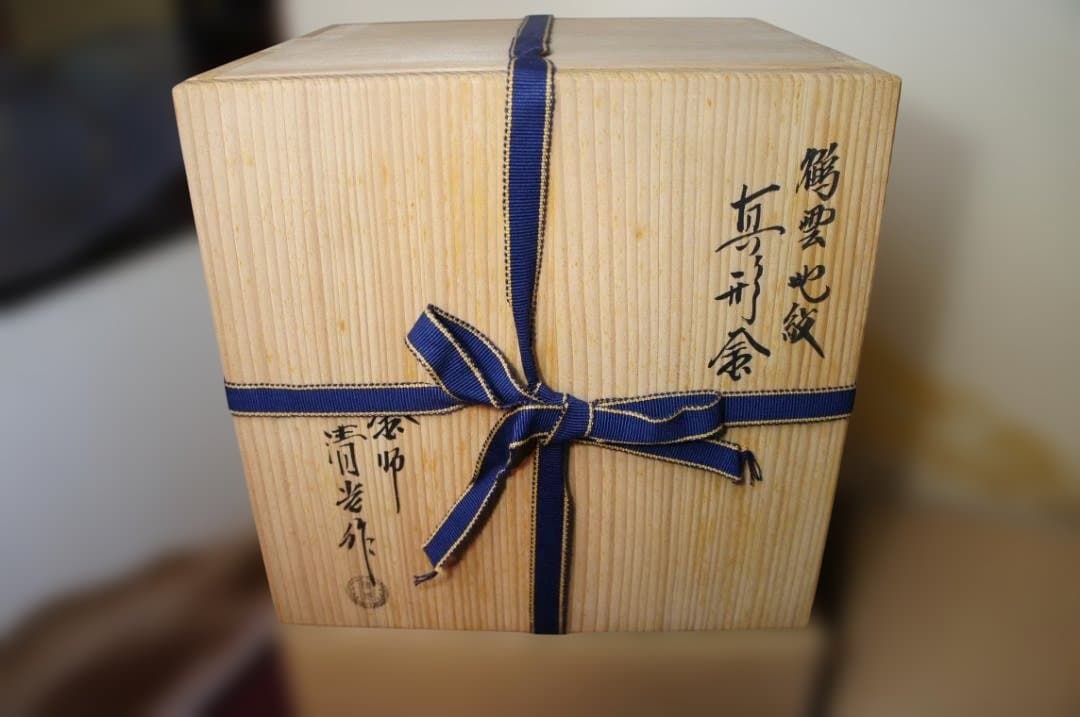 鶴雲地紋
真形釜
釜師
清光作